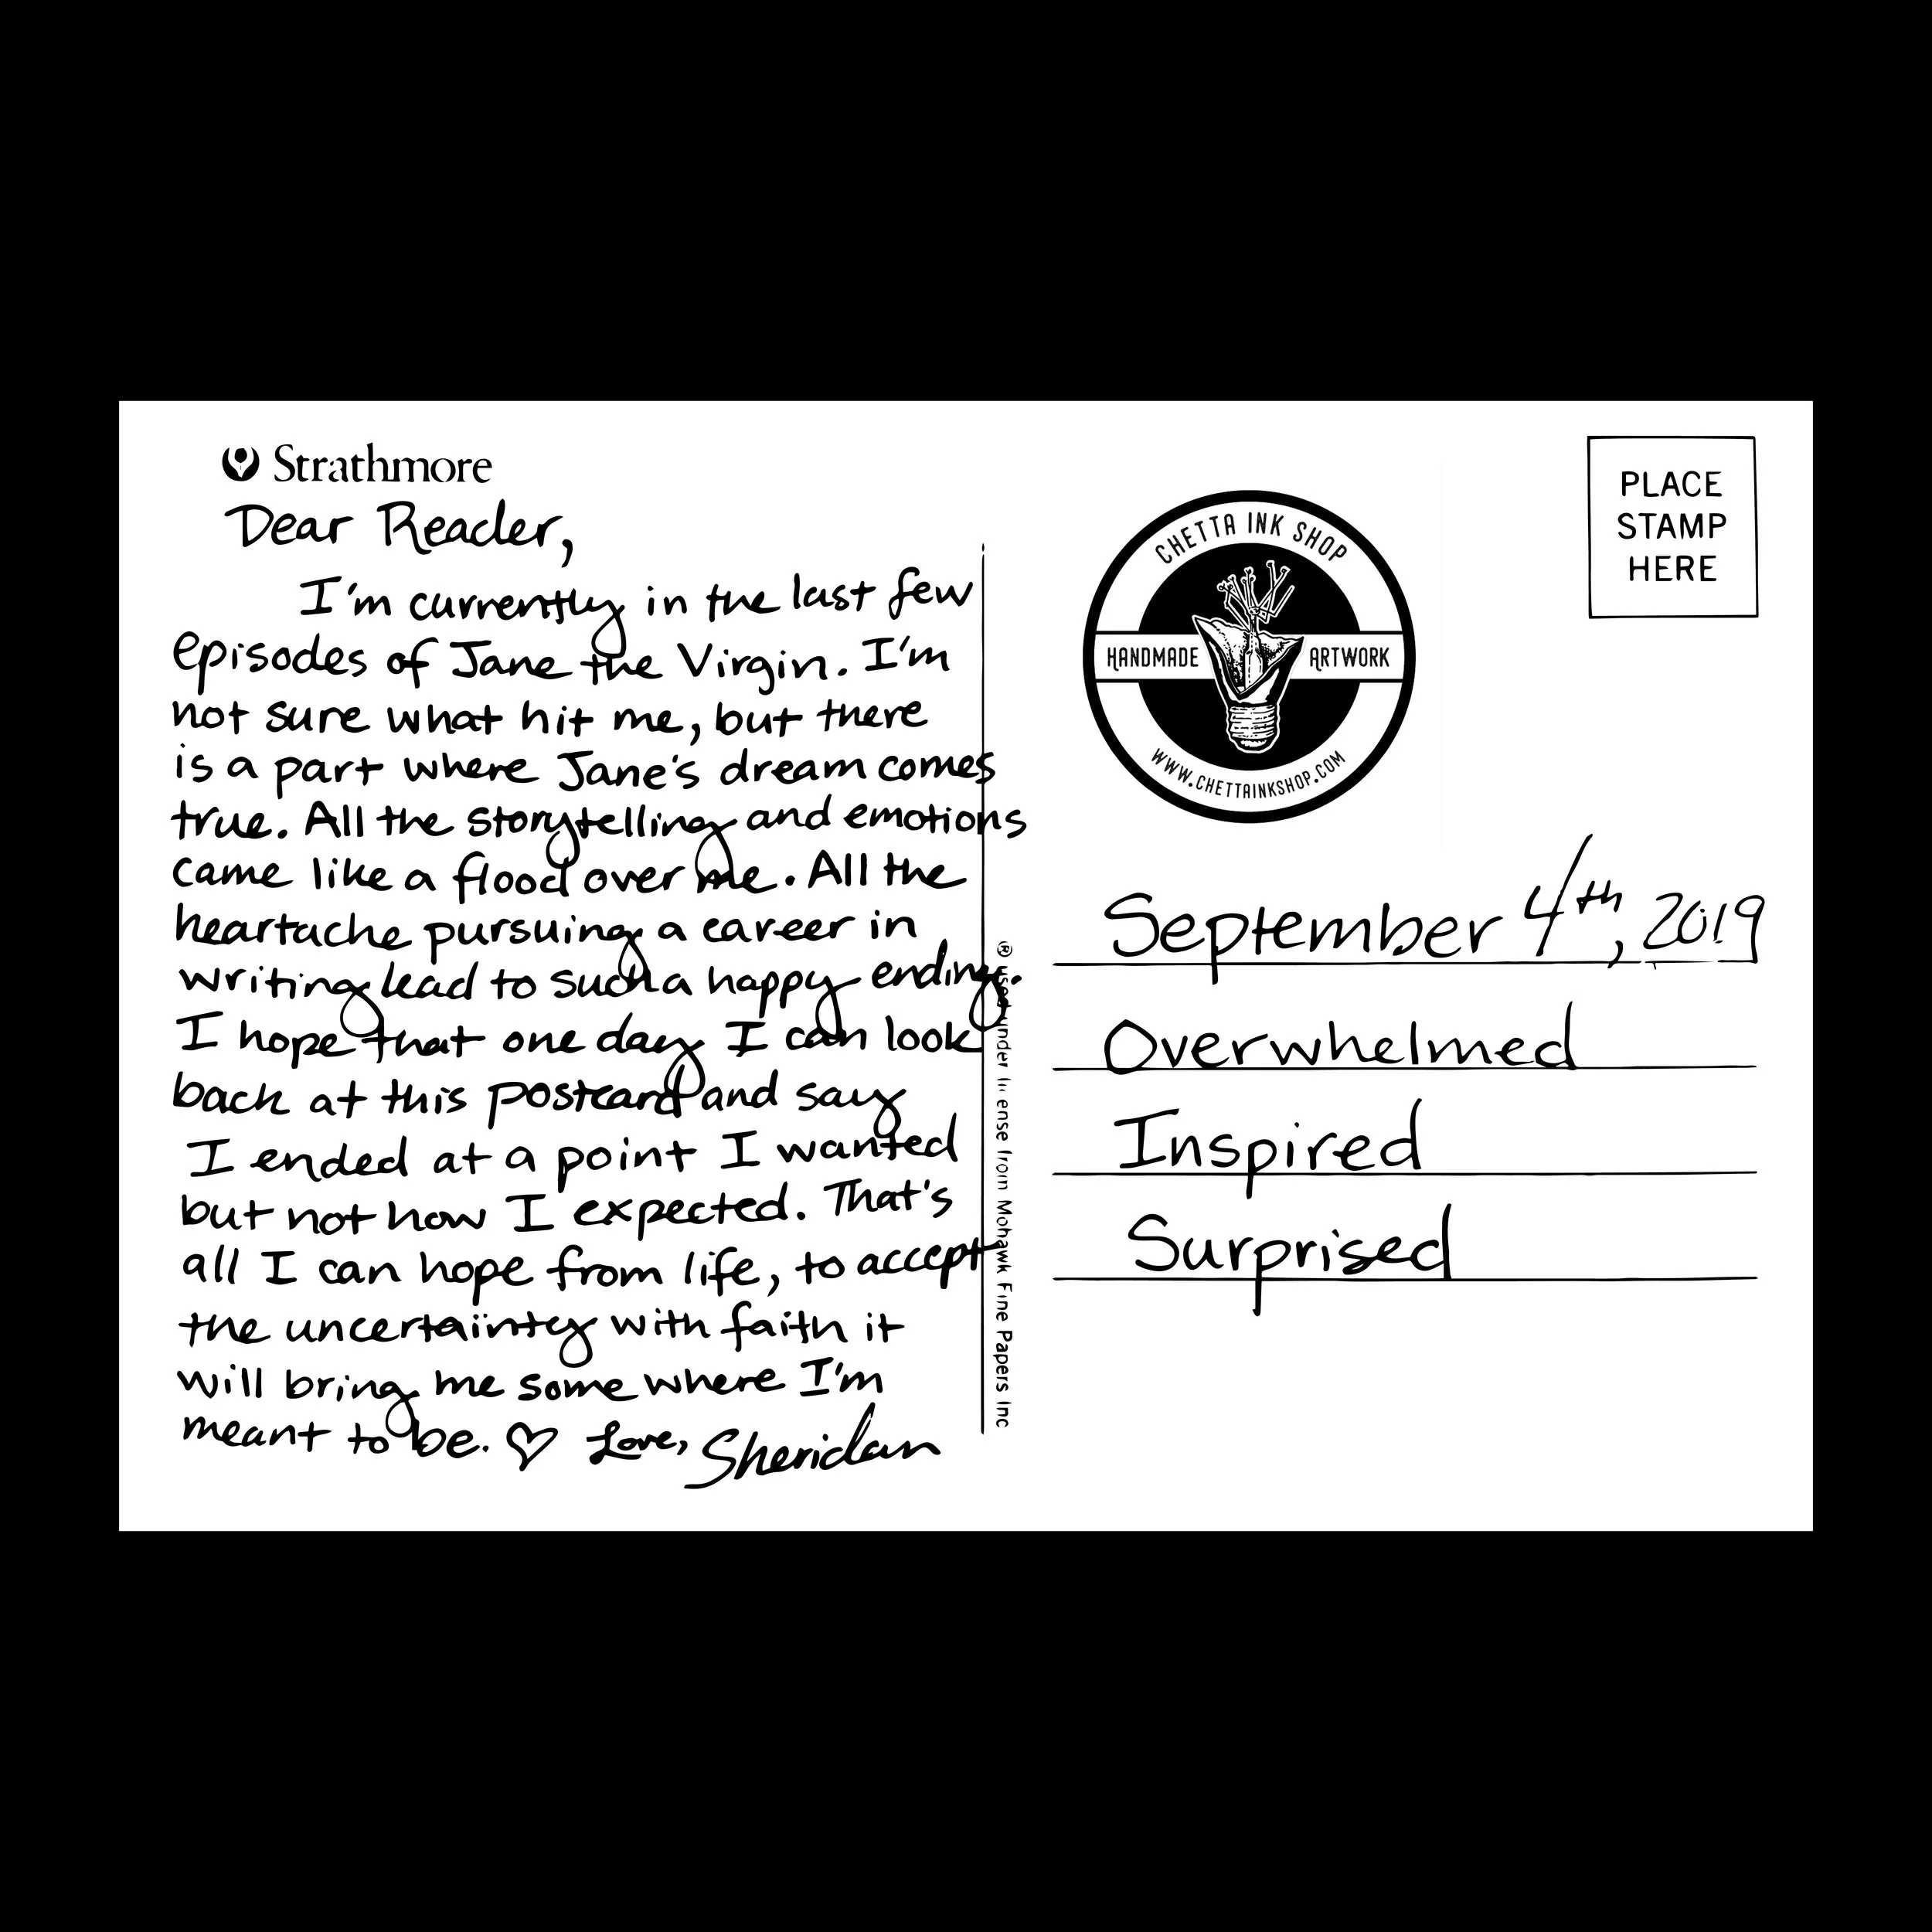 Strathmore
Dear Reader,
I'm currently in the last few
episodes of Jane the Virgin. I'm
not sure what hit me, but there
is a part where Jane's dream comes
true. All the storytelling and emotions
came like a flood over me. All the
heartache pursuing a career in
writing lead to such a happy ending.
I hope that one day I can look
back at this postcard and say
I ended at a point I wanted
but not how I expected. That's
all I can hope from life, to accept
the uncertainty with faith it
will bring me some where I'm
meant to be. ♡ Love, Sheridan
® used under license from Mohawk Fine Papers Inc
CHETTA INK SHOP
HANDMADE ARTWORK
WWW.CHETTAINKSHOP.COM
PLACE
STAMP
HERE
September 4th, 2019
Overwhelmed
Inspired
Surprised